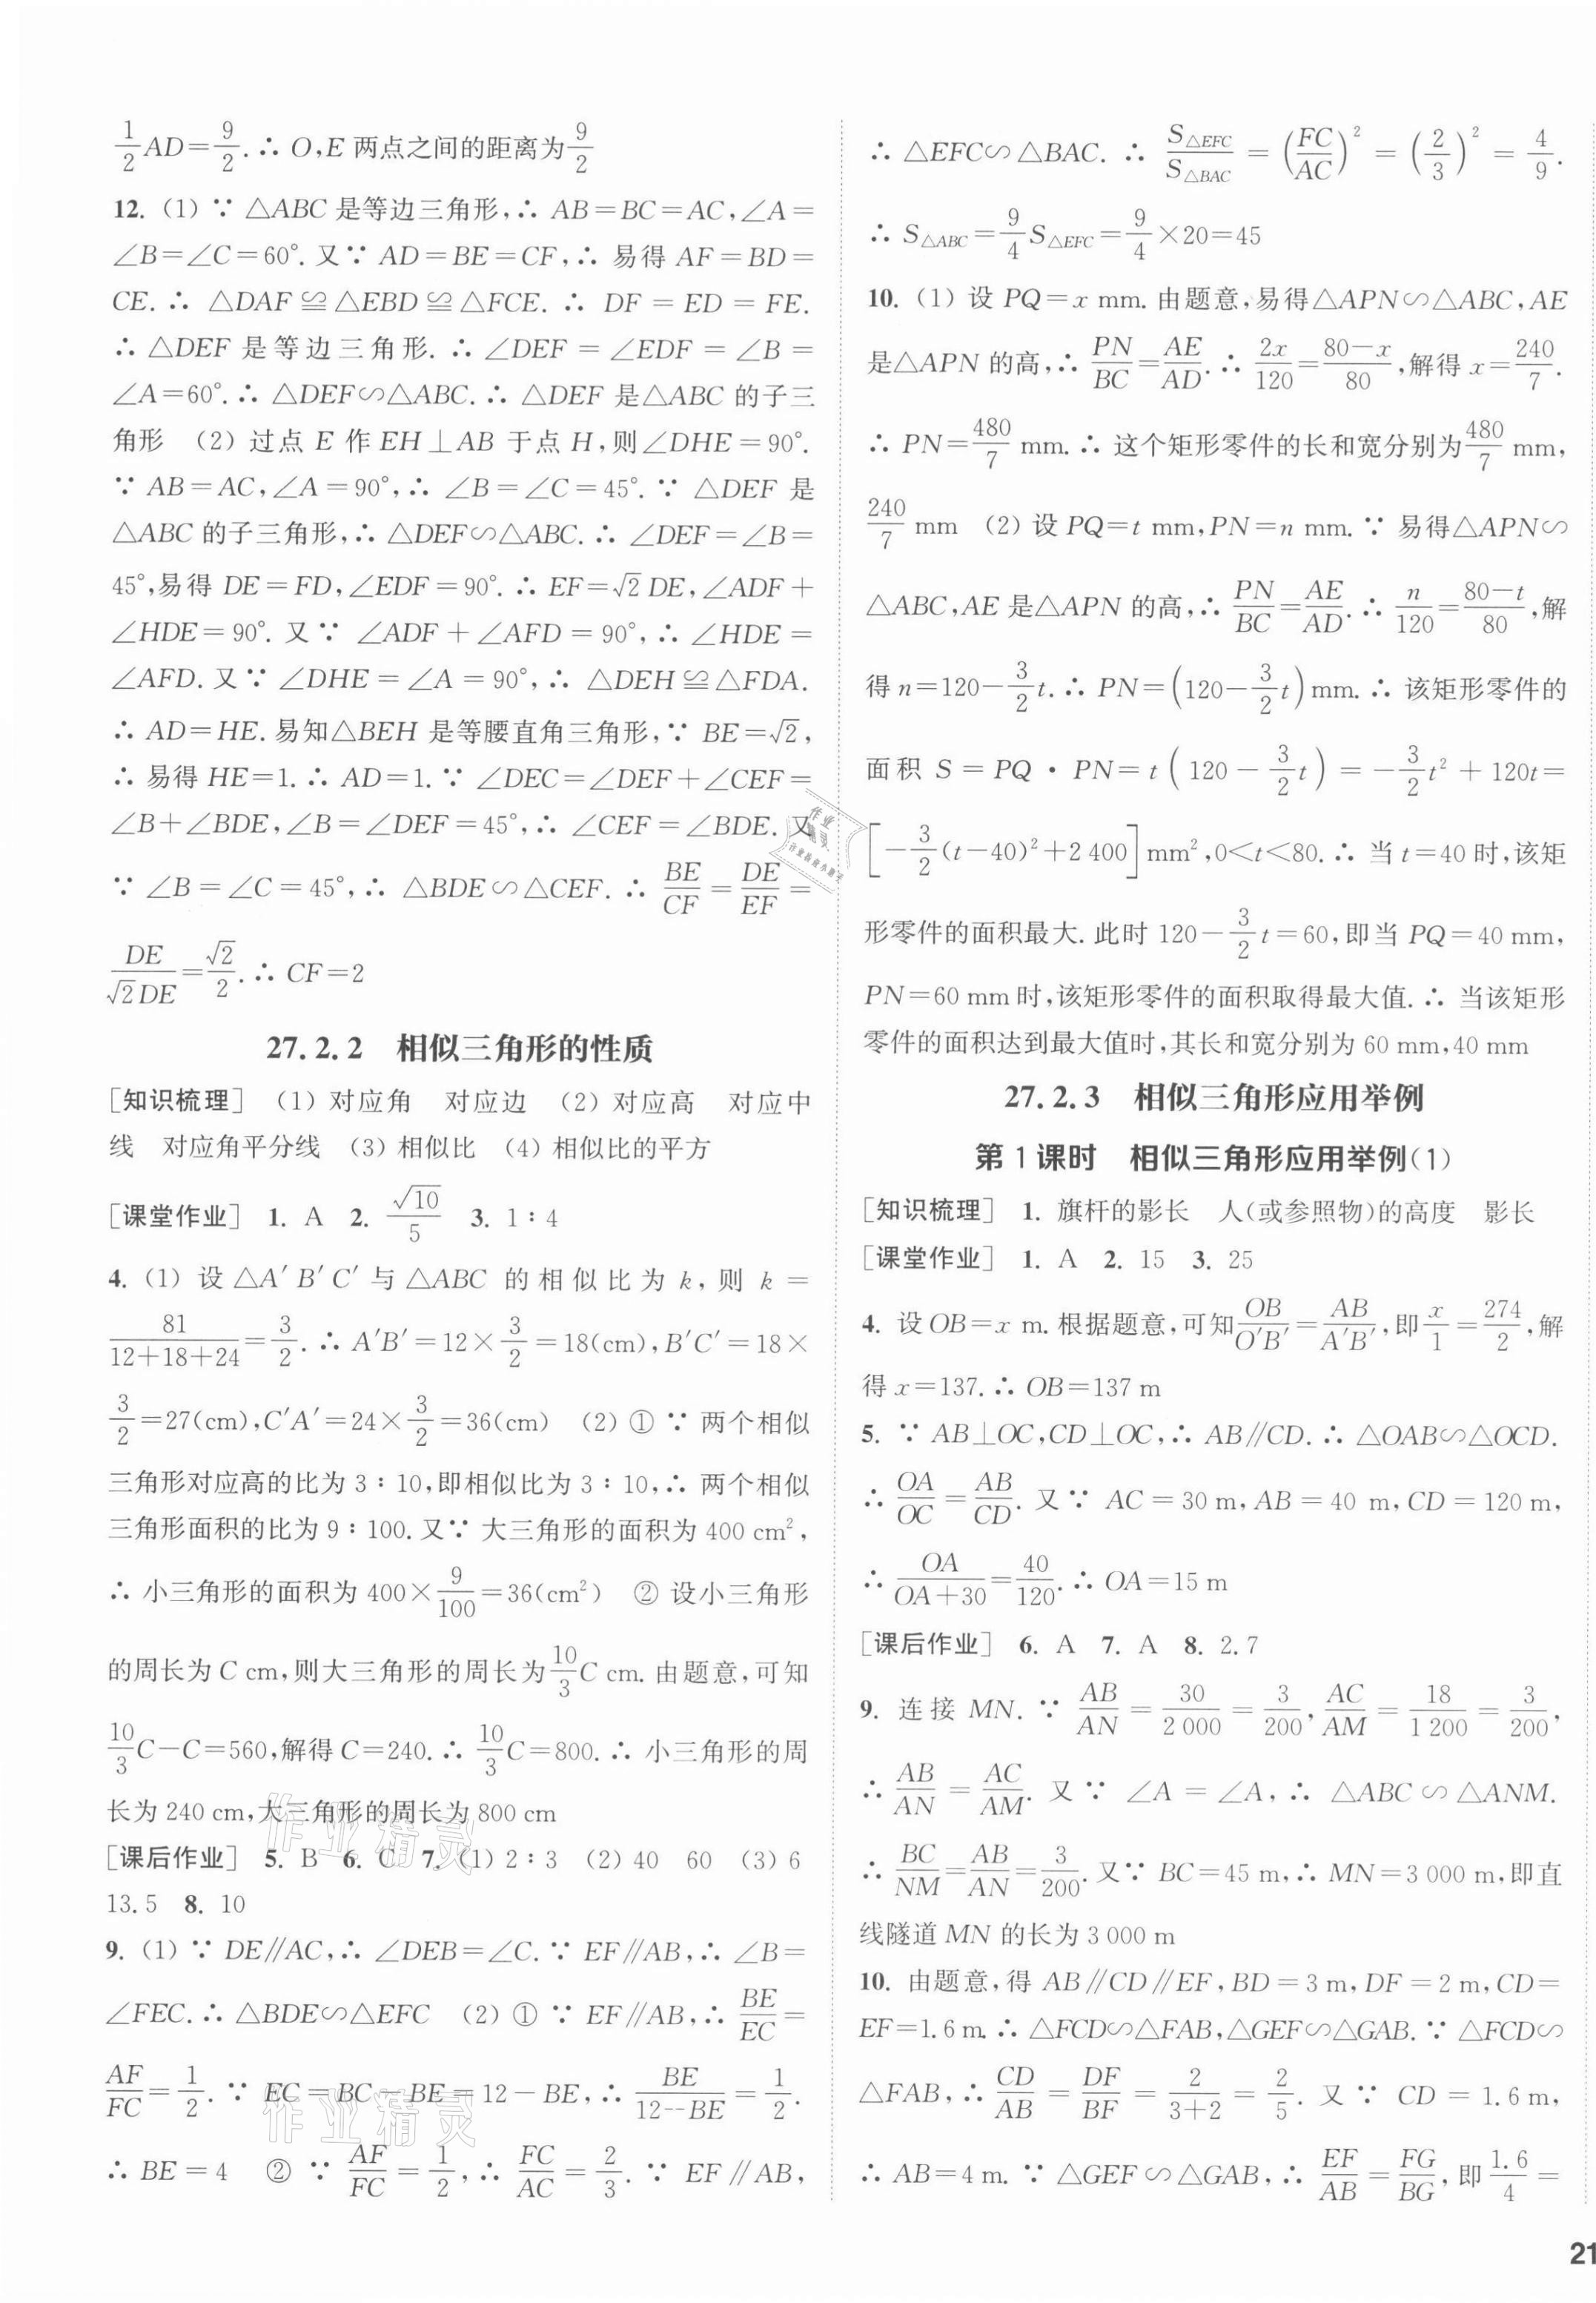 1/2 AD=9/2.∴ O,E 两点之间的距离为9/2
12. (1) ∵ △ABC 是等边三角形,∴ AB=BC=AC,∠A=
∠B=∠C=60°. 又∵ AD=BE=CF,∴ 易得 AF=BD=
CE.∴ △DAF≌△EBD≌△FCE.∴ DF=ED=FE.
∴ △DEF 是等边三角形.∴ ∠DEF=∠EDF=∠B=
∠A=60°.∴ △DEF∽△ABC.∴ △DEF 是△ABC 的子三
角形 (2) 过点 E 作 EH⊥AB 于点 H,则∠DHE=90°.
∵ AB=AC,∠A=90°,∴ ∠B=∠C=45°.∵ △DEF 是
△ABC 的子三角形,∴ △DEF∽△ABC.∴ ∠DEF=∠B=
45°,易得 DE=FD,∠EDF=90°.∴ EF=√2DE,∠ADF+
∠HDE=90°. 又∵ ∠ADF+∠AFD=90°,∴ ∠HDE=
∠AFD. 又∵ ∠DHE=∠A=90°,∴ △DEH≌△FDA.
∴ AD=HE. 易知△BEH 是等腰直角三角形,∵ BE=√2,
∴ 易得 HE=1.∴ AD=1.∵ ∠DEC=∠DEF+∠CEF=
∠B+∠BDE,∠B=∠DEF=45°,∴ ∠CEF=∠BDE. 又
∵ ∠B=∠C=45°,∴ △BDE∽△CEF.∴ BE/CF=DE/EF=
DE/√2DE=√2/2.∴ CF=2
27.2.2 相似三角形的性质
[知识梳理] (1) 对应角 对应边 (2) 对应高 对应中
线 对应角平分线 (3) 相似比 (4) 相似比的平方
[课堂作业] 1. A 2. √10/5 3. 1∶4
4. (1) 设△A′B′C′与△ABC 的相似比为 k,则 k=
81/(12+18+24)=3/2.∴ A′B′=12×3/2=18(cm),B′C′=18×
3/2=27(cm),C′A′=24×3/2=36(cm) (2) ① ∵ 两个相似
三角形对应高的比为 3∶10,即相似比为 3∶10,∴ 两个相似
三角形面积的比为 9∶100. 又∵ 大三角形的面积为 400 cm²,
∴ 小三角形的面积为 400×9/100=36(cm²) ② 设小三角形
的周长为 C cm,则大三角形的周长为10/3C cm. 由题意,可知
10/3C-C=560,解得 C=240.∴ 10/3C=800.∴ 小三角形的周
长为 240 cm,大三角形的周长为 800 cm
[课后作业] 5. B 6. C 7. (1) 2∶3 (2) 40 60 (3) 6
13.5 8. 10
9. (1) ∵ DE∥AC,∴ ∠DEB=∠C.∵ EF∥AB,∴ ∠B=
∠FEC.∴ △BDE∽△EFC (2) ① ∵ EF∥AB,∴ BE/EC=
AF/FC=1/2.∵ EC=BC-BE=12-BE,∴ BE/(12-BE)=1/2.
∴ BE=4 ② ∵ AF/FC=1/2,∴ FC/AC=2/3.∵ EF∥AB,
∴ △EFC∽△BAC.∴ S△EFC/S△BAC=(FC/AC)²=(2/3)²=4/9.
∴ S△ABC=9/4S△EFC=9/4×20=45
10. (1) 设 PQ=x mm. 由题意,易得△APN∽△ABC,AE
是△APN 的高,∴ PN/BC=AE/AD.∴ 2x/120=(80-x)/80,解得 x=240/7.
∴ PN=480/7 mm.∴ 这个矩形零件的长和宽分别为480/7 mm,
240/7 mm (2) 设 PQ=t mm,PN=n mm.∵ 易得△APN∽
△ABC,AE 是△APN 的高,∴ PN/BC=AE/AD.∴ n/120=(80-t)/80,解
得 n=120-3/2t.∴ PN=(120-3/2t)mm.∴ 该矩形零件的
面积 S=PQ·PN=t(120-3/2t)=-3/2t²+120t=
[-3/2(t-40)²+2 400]mm²,0<t<80.∴ 当 t=40 时,该矩
形零件的面积最大. 此时 120-3/2t=60,即当 PQ=40 mm,
PN=60 mm 时,该矩形零件的面积取得最大值.∴ 当该矩形
零件的面积达到最大值时,其长和宽分别为 60 mm,40 mm
27.2.3 相似三角形应用举例
第 1 课时 相似三角形应用举例(1)
[知识梳理] 1. 旗杆的影长 人(或参照物)的高度 影长
[课堂作业] 1. A 2. 15 3. 25
4. 设 OB=x m. 根据题意,可知OB/O′B′=AB/A′B′,即x/1=274/2,解
得 x=137.∴ OB=137 m
5. ∵ AB⊥OC,CD⊥OC,∴ AB∥CD.∴ △OAB∽△OCD.
∴ OA/OC=AB/CD. 又∵ AC=30 m,AB=40 m,CD=120 m,
∴ OA/(OA+30)=40/120.∴ OA=15 m
[课后作业] 6. A 7. A 8. 2.7
9. 连接 MN.∵ AB/AN=30/2 000=3/200,AC/AM=18/1 200=3/200,
∴ AB/AN=AC/AM. 又∵ ∠A=∠A,∴ △ABC∽△ANM.
∴ BC/NM=AB/AN=3/200. 又∵ BC=45 m,∴ MN=3 000 m,即直
线隧道 MN 的长为 3 000 m
10. 由题意,得 AB∥CD∥EF,BD=3 m,DF=2 m,CD=
EF=1.6 m.∴ △FCD∽△FAB,△GEF∽△GAB.∵ △FCD∽
△FAB,∴ CD/AB=DF/BF=2/(3+2)=2/5. 又∵ CD=1.6 m,
∴ AB=4 m.∵ △GEF∽△GAB,∴ EF/AB=FG/BG,即1.6/4=
21
作业精灵
作业精灵